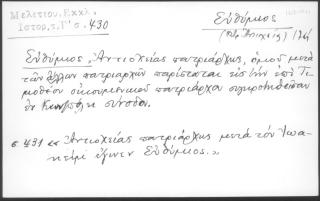 Μελετίου, Εκκλ.
Ιστορ., τ. Γ' σ. 430
Εὐθύμιος
Εὐθύμιος, Ἀντιοχείας πατριάρχης, ὁμοῦ μετὰ
τῶν ἄλλων πατριαρχῶν παρίσταται εἰς τὴν ἐπὶ Τι-
μοθέου οἰκουμενικοῦ πατριάρχου συγκροτηθεῖσαν
ἐν Κωνπόλει σύνοδον.
σ 431 « Ἀντιοχείας πατριάρχης μετὰ τὸν Ἰωα-
κεὶμ ἔγινεν Εὐθύμιος.»